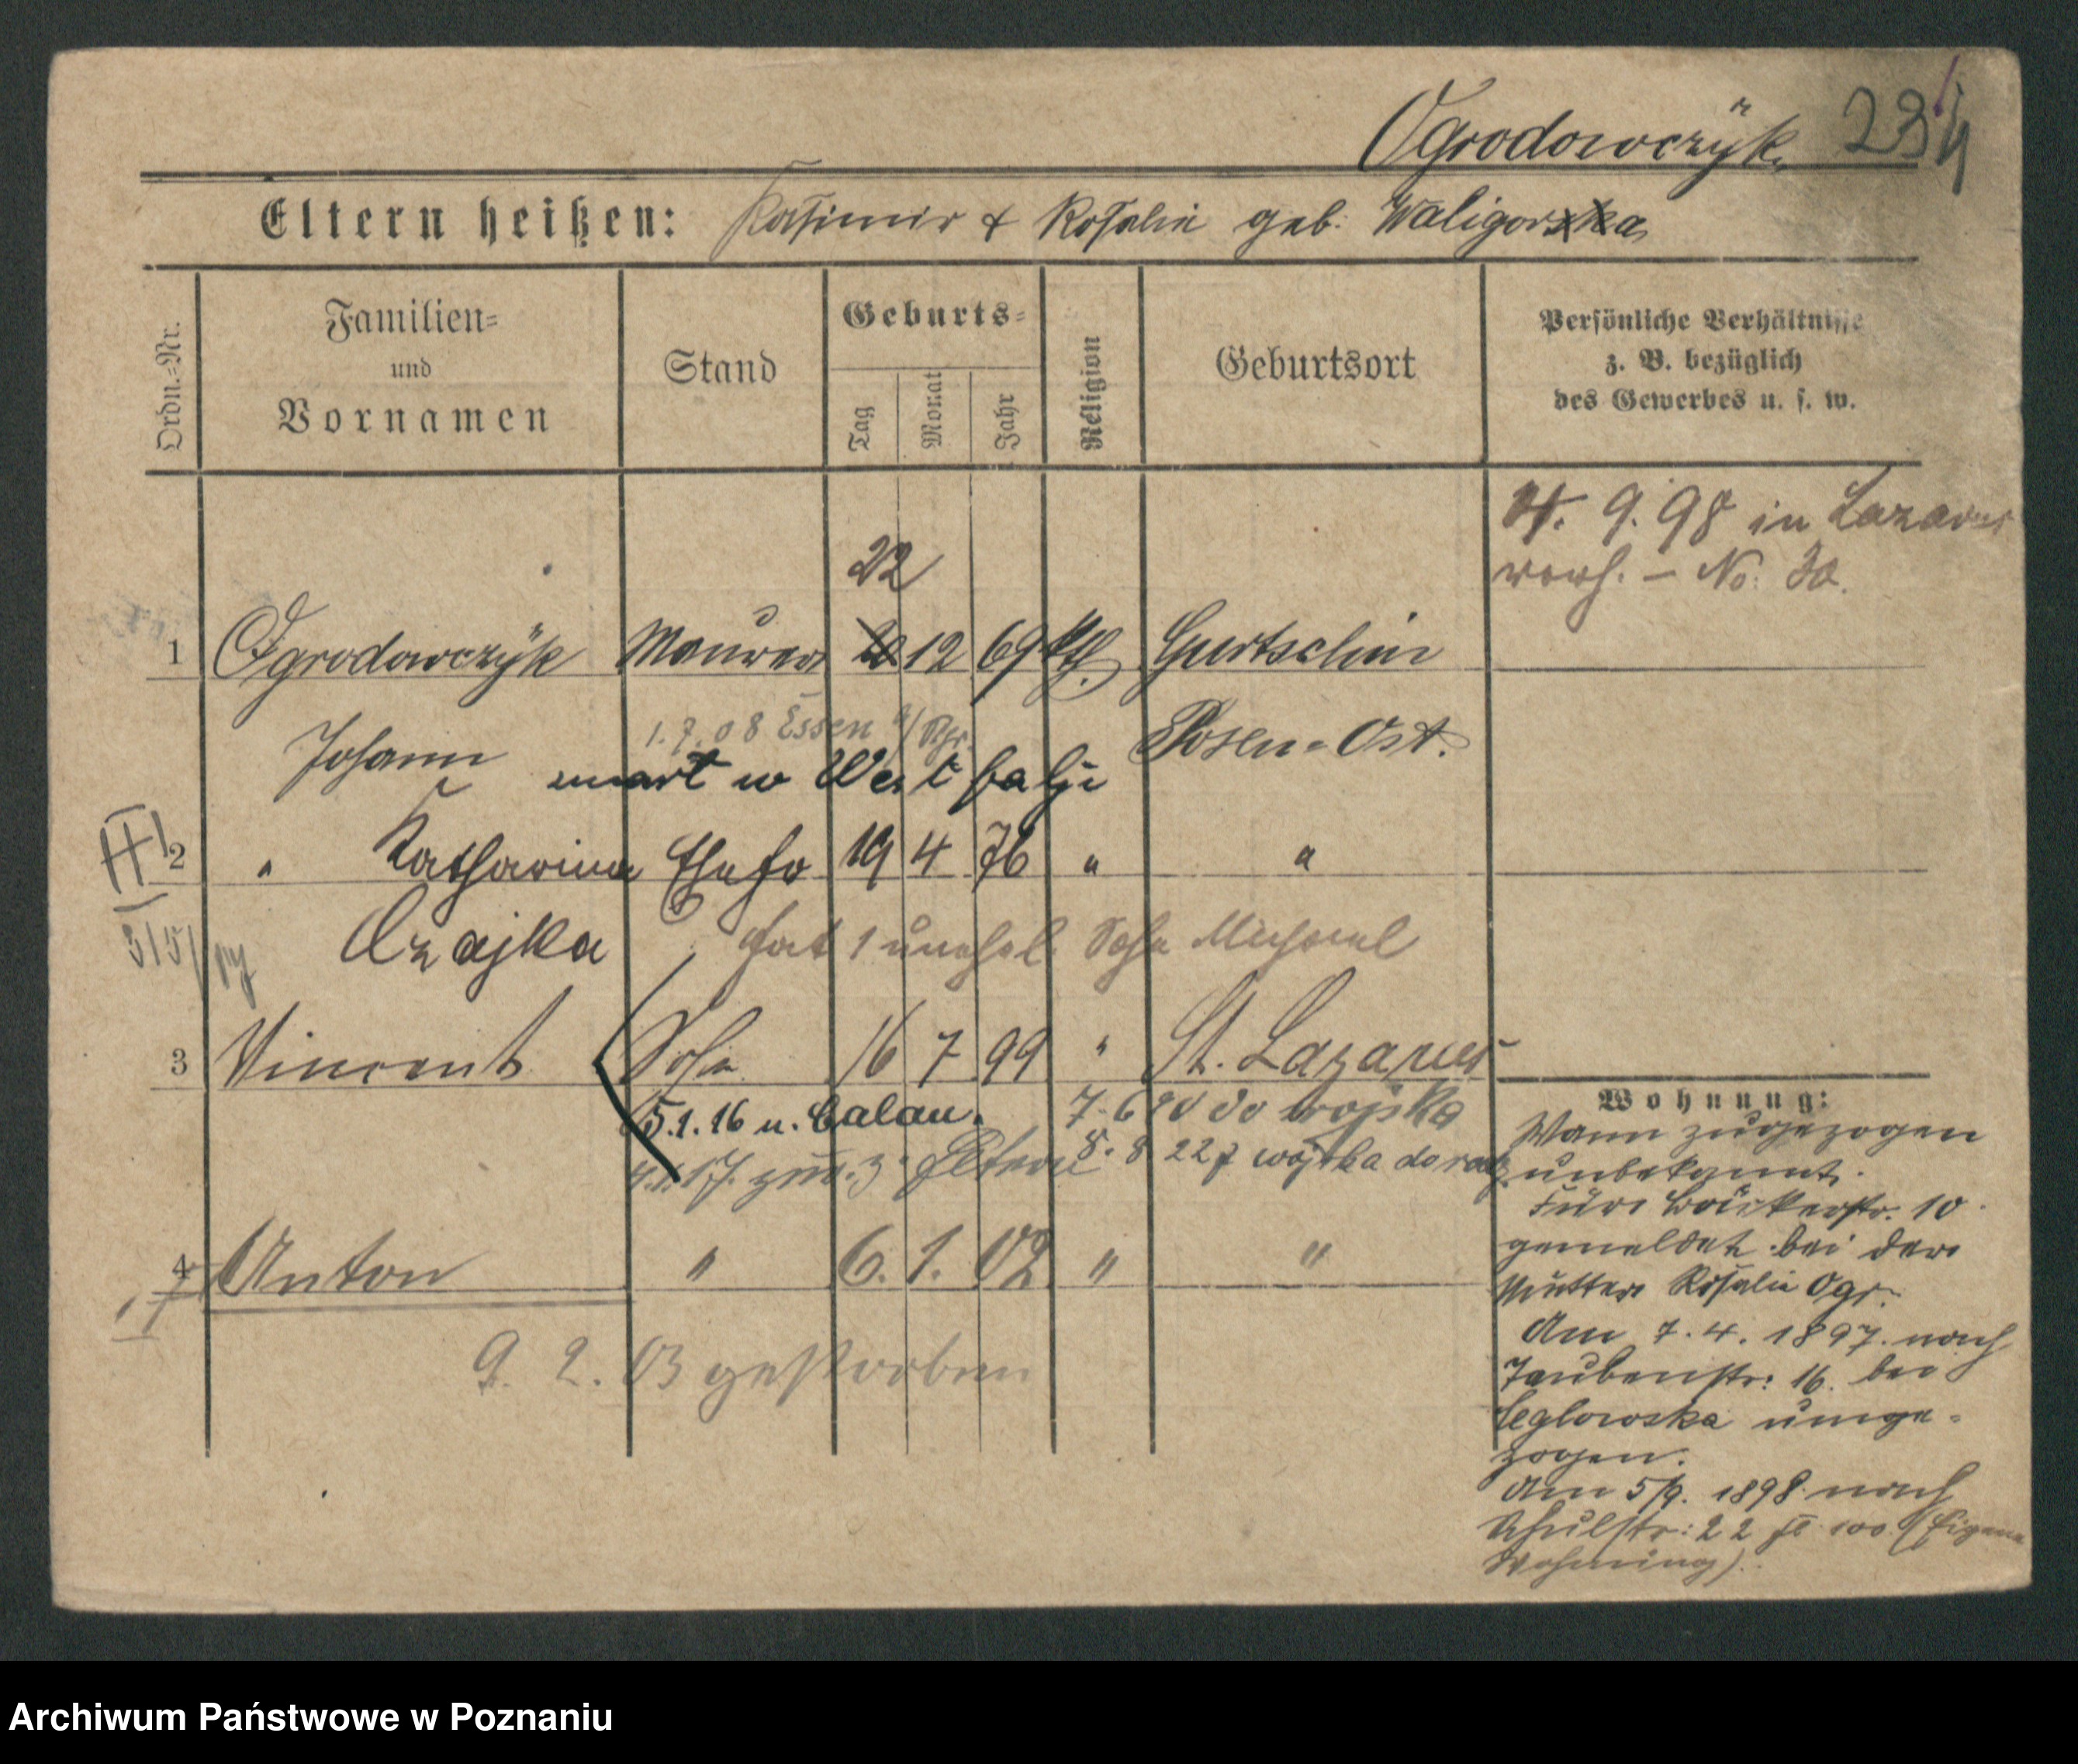 Ogrodowczÿk. 234
Eltern heißen: Kasimir & Rosalie geb. Waligorska
Ordn.=Nr.
Familien=
und
Vornamen
Stand
Geburts=
Tag
Monat
Jahr
Religion
Geburtsort
Persönliche Verhältnisse
z. B. bezüglich
des Gewerbes u. s. w.
9. 98 in Lazarus
No. 30.
22
1 Ogrodowczÿk Maurer 20 12 69 kth. Gurtschin
1.7.08 Essen a/Rhr.
Johann Posen=Ost.
umarł w Westfalji
2 " Katharina Ehefr 19 4 76 " "
Czajka hat 1 unehel. Sohn Michael
3 Vincent Sohn 16 7 99 " St. Lazarus
5.1.16 n. Calau. 7.6 20 do wojska
17. zur. z. Eltern 8. 8 22 z wojska do
4 Anton " 6. 1. 02 " "
9. 2. 03 gestorben
Wohnung:
Wann zugezogen
unbekannt.
Für Bäckerstr. 10
gemeldet bei der
Mutter Rosalie Ogr.
Am 7. 4. 1897. nach
Taubenstr: 16. bei
Ceglowska umge-
zogen.
Am 5/9. 1898 nach
Schulstr: 22 (Eigene
Wohnung).
Archiwum Państwowe w Poznaniu